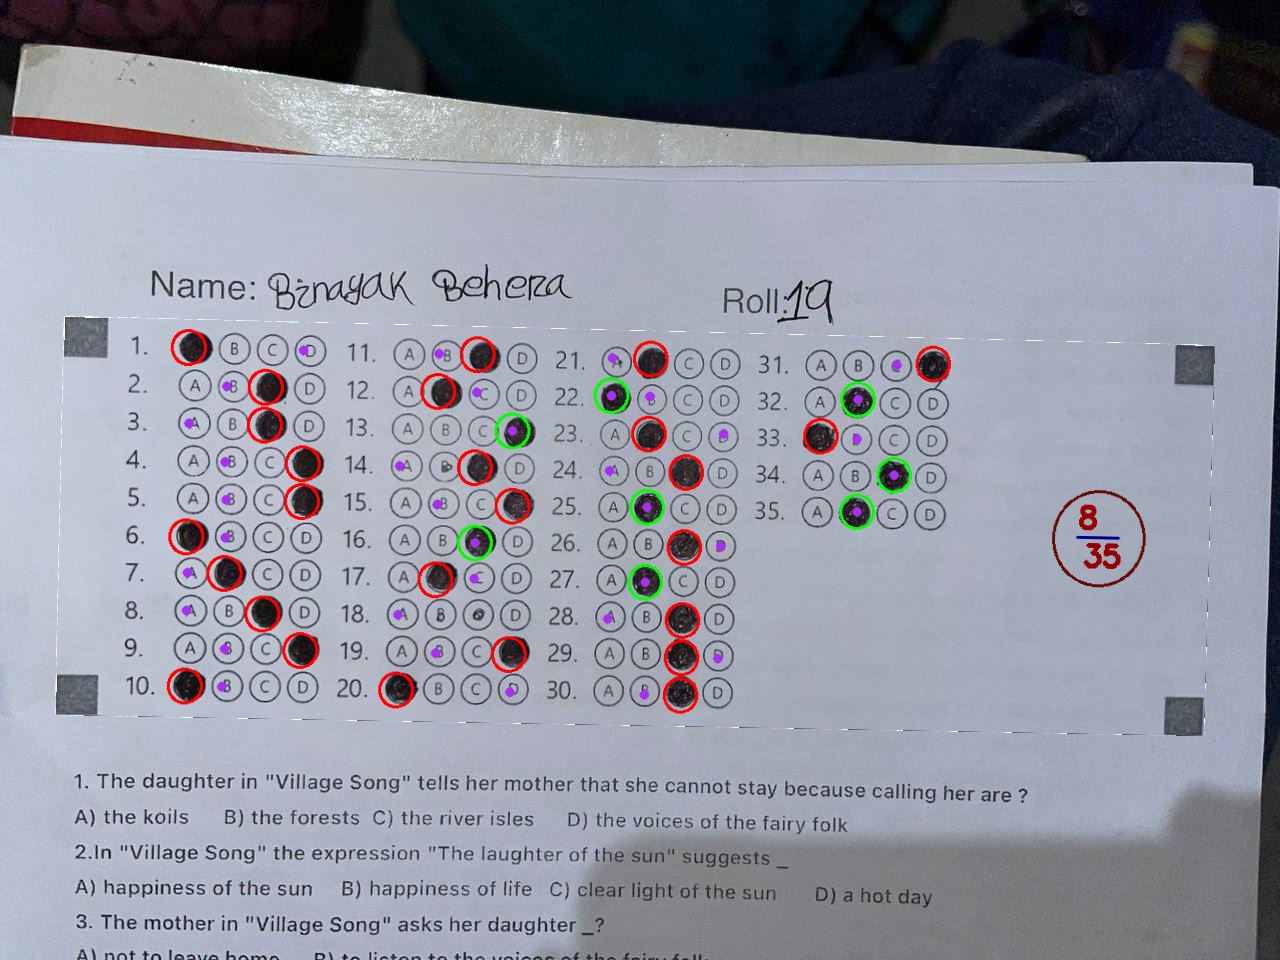 Name: Binayak Behera
Roll: 19
1. B C D
2. A B D
3. A B D
4. A B C
5. A B C
6. B C D
7. A C D
8. A B D
9. A B C
10. B C D
11. A B D
12. A C D
13. A B C
14. A B D
15. A B C
16. A B D
17. A C D
18. A B D
19. A B C
20. B C D
21. A C D
22. B C D
23. A C D
24. A B D
25. A C D
26. A B D
27. A C D
28. A B D
29. A B D
30. A B D
31. A B
32. A C D
33. C D
34. A B D
35. A C D
8
35
1. The daughter in "Village Song" tells her mother that she cannot stay because calling her are ?
A) the koils B) the forests C) the river isles D) the voices of the fairy folk
2.In "Village Song" the expression "The laughter of the sun" suggests _
A) happiness of the sun B) happiness of life C) clear light of the sun D) a hot day
3. The mother in "Village Song" asks her daughter _?
A) not to leave home B) to listen to the voices of the fairy folk